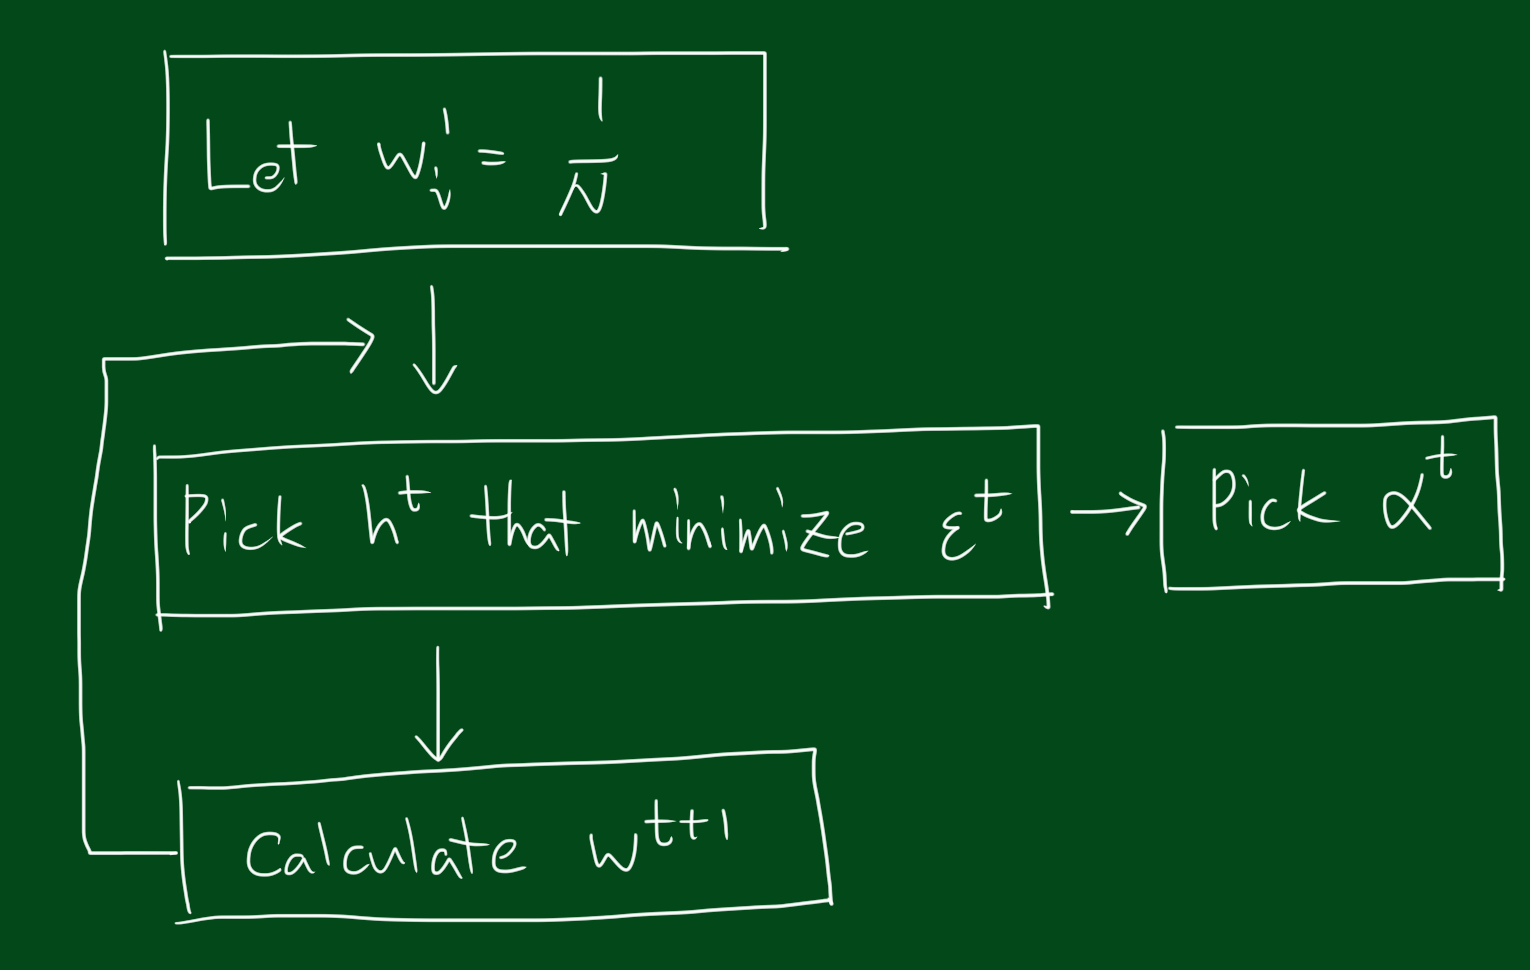 Let w_i^1 = 1/N
Pick h^t that minimize ε^t
Pick α^t
Calculate w^{t+1}